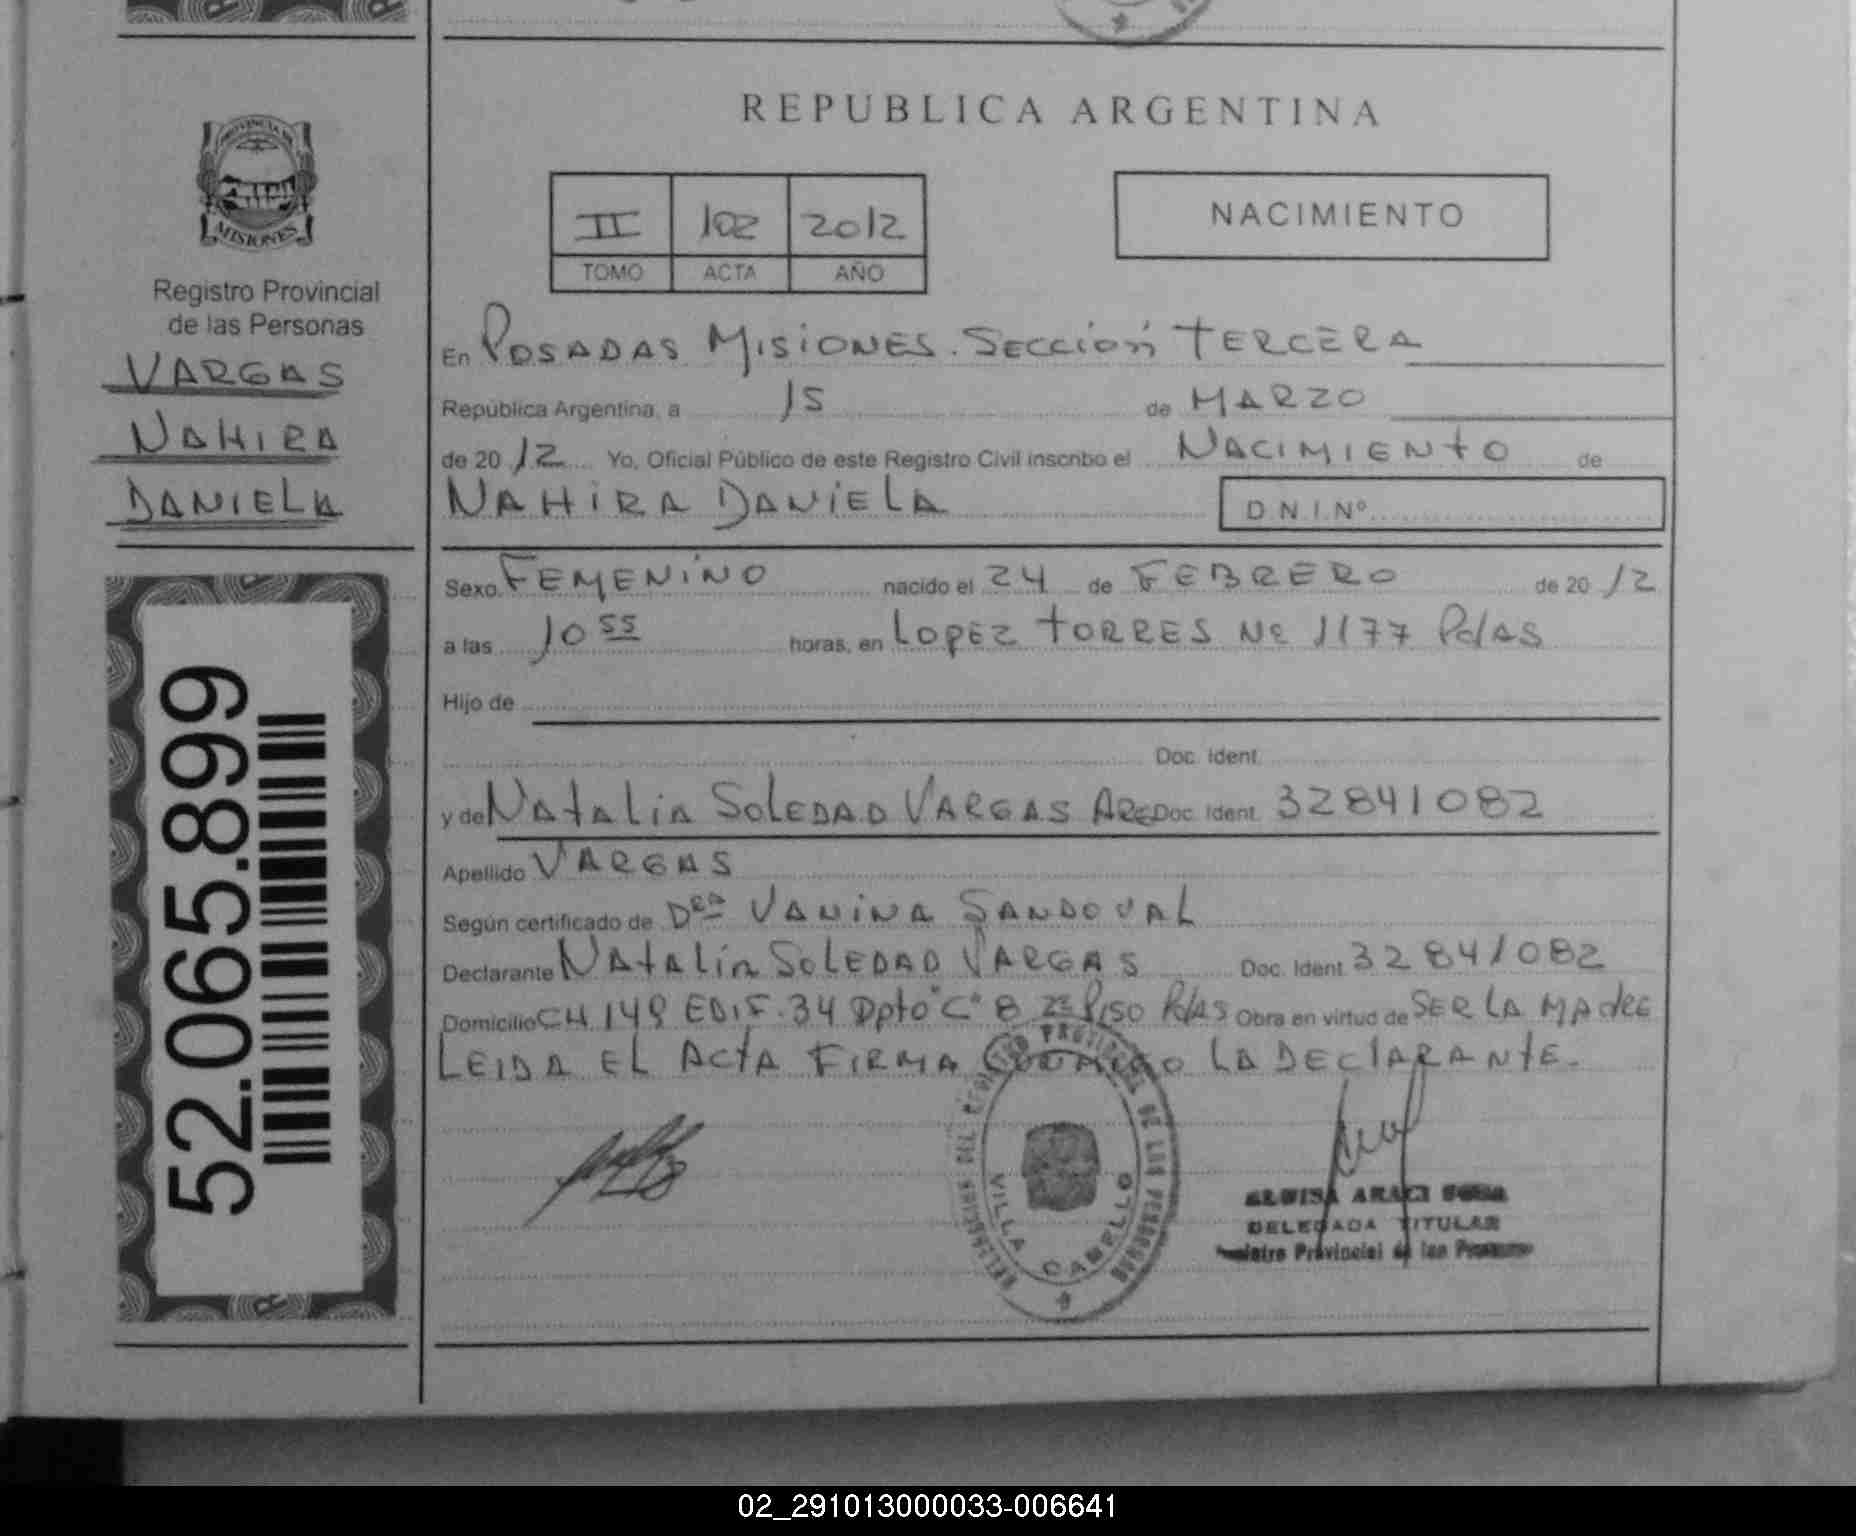 REPUBLICA ARGENTINA
PROVINCIA DE
MISIONES
Registro Provincial
de las Personas
VARGAS
NAHIRA
DANIELA
52.065.899
II 102 2012
TOMO ACTA AÑO
NACIMIENTO
En POSADAS MISIONES. SECCION TERCERA
República Argentina, a 15 de MARZO
de 20 12 Yo, Oficial Público de este Registro Civil inscribo el NACIMIENTO de
NAHIRA DANIELA D.N.I.Nº
Sexo FEMENINO nacido el 24 de FEBRERO de 20 12
a las 10 55 horas, en LOPEZ TORRES Nº 1177 Pdas
Hijo de
Doc. Ident.
y de Natalia SOLEDAD VARGAS ARG Doc. Ident. 32841082
Apellido VARGAS
Según certificado de Dra VANINA SANDOVAL
Declarante Natalia SOLEDAD VARGAS Doc. Ident. 32841082
Domicilio CH 149 EDIF. 34 Dpto "C" 8 Piso Pdas Obra en virtud de SER LA MADRE
LEIDA EL ACTA FIRMA CONMIGO LA DECLARANTE.
REGISTRO PROVINCIAL DE LAS PERSONAS
VILLA CABELLO
DELEGADA TITULAR
Registro Provincial de las Personas
02_291013000033-006641